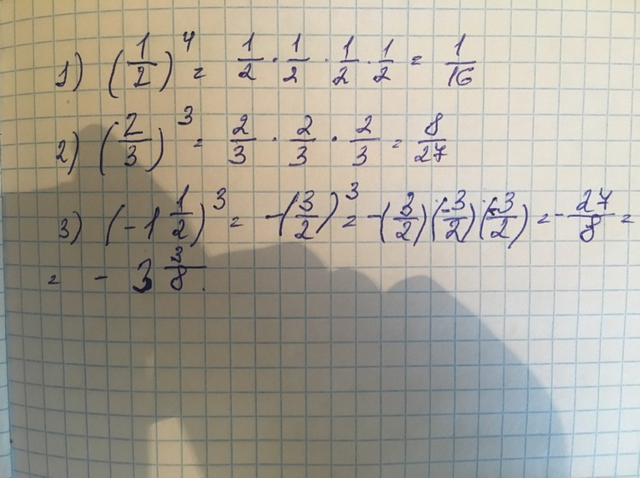 1) (1/2)^4 = 1/2 · 1/2 · 1/2 · 1/2 = 1/16
2) (2/3)^3 = 2/3 · 2/3 · 2/3 = 8/27
3) (-1 1/2)^3 = -(3/2)^3 = -(3/2)(-3/2)(-3/2) = -27/8 =
= -3 3/8.